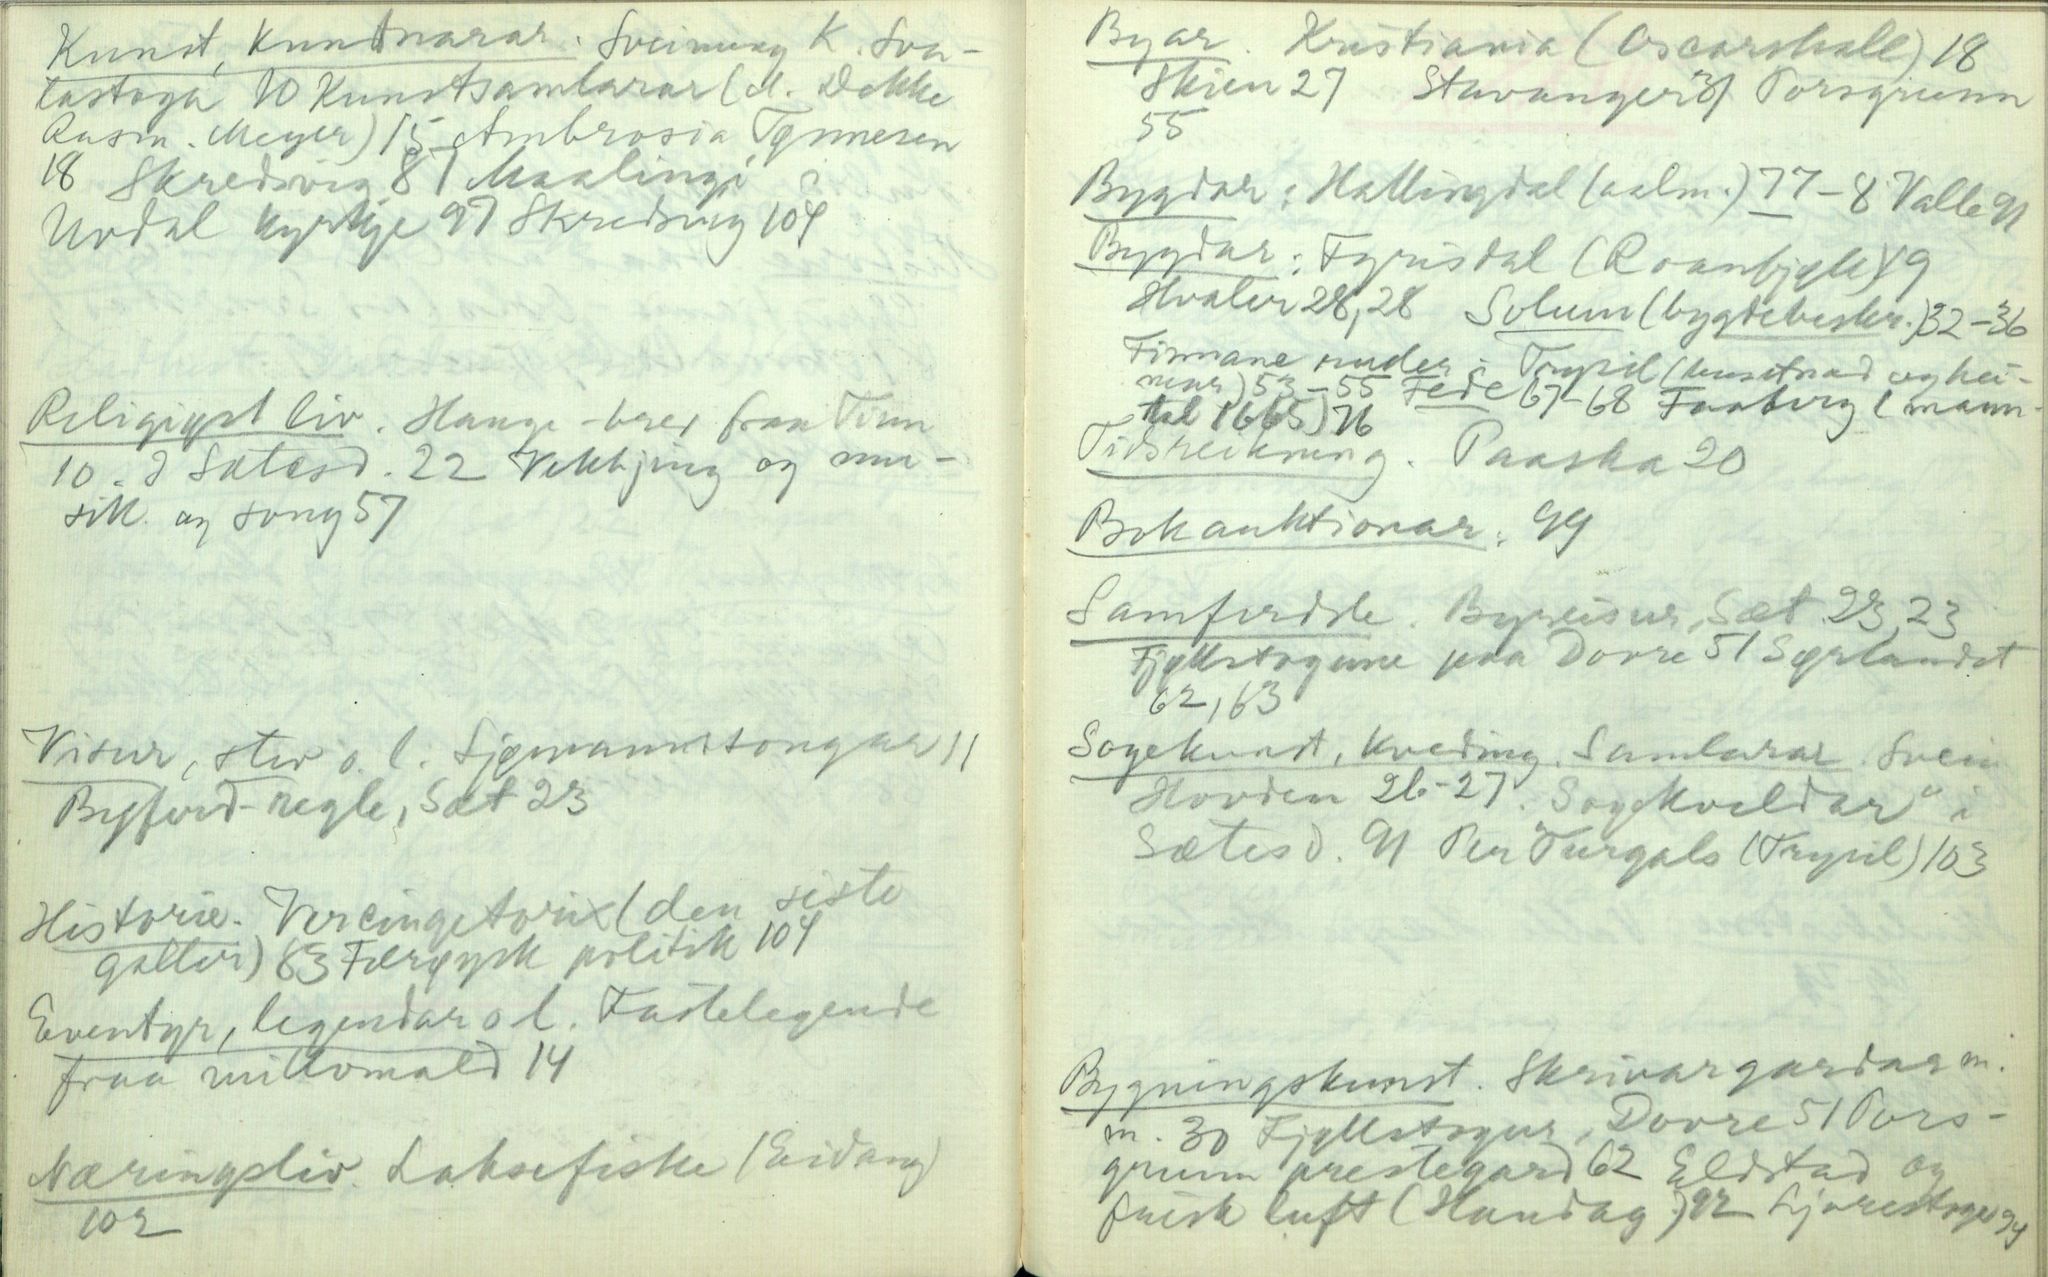 Kunst, kunstnarar. Sveinung K. Sva-
tastoga 10 Kunstsamlarar (d. Dekke
Rasm. Meyer) 15 Ambrosia Tønnesen
18 Skredsvig 87 Maalingi i
Uvdal kyrkje 97 Skredsvig 104
Religiøst liv. Hauge-brev fraa Tinn
10. I Sætesd. 22 Vekkjing og mu-
sik og song 57
Visur, stev o. l. Sjømannssongar 11
Byferd-regle, Sæt 23
Historie. Vercingetorix (den siste
galler) 63 Færøysk politik 104
Eventyr, legendar o l. Fastelegende
fraa millomald 14
Næringsliv. Laksefiske (Eidang)
102
Byar. Kristiania (Oscarshall) 18
Skien 27 Stavanger 31 Porsgrunn
55
Bygdar: Hallingdal (aalm.) 77-8 Valle 91
Bygdar: Fyrisdal (Roanbjgk) 19
Hvaler 28, 28 Solum (bygdebeskr.) 32-36
Finnane nuder i Trysil (busetnad og hei-
mar) 53-55 Fede 67-68 Faaberg (mann-
tal 1665) 76
Tidsreikning. Paaska 20
Bokauktionar: 99
Samferdsle. Byreisur, Sæt. 23, 23
Fjellstogune paa Dovre 51 Sørlandet
62, 63
Sogekunst, kveding. Samlarar. Svein
Hovden 26-27. Sogekveldar" i
Sætesd. 91 Per Turgals (Trysil) 103
Bygningskunst. Skrivargardar m.
m. 30 Fjellstogur, Dovre 51 Pors-
grunn prestegard 62 Eldstad og
frisk luft (Handag.) 92 Ljorestoge 94